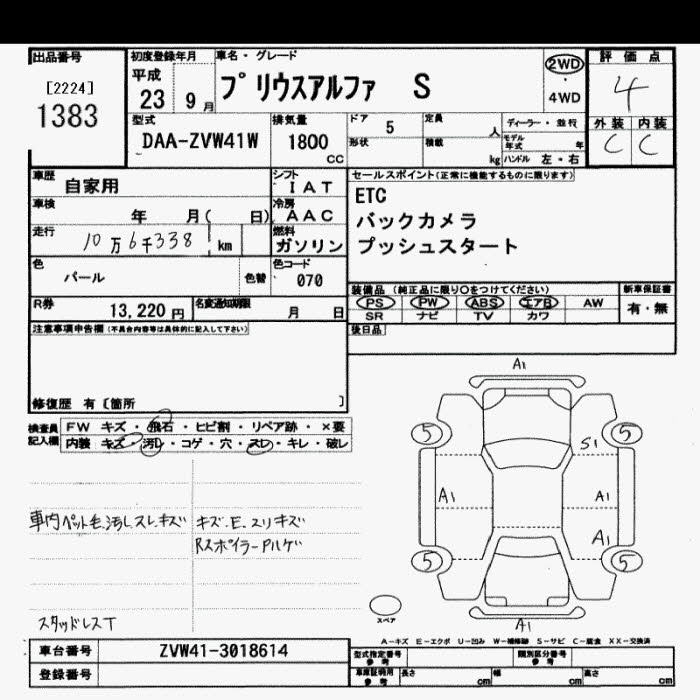 出品番号
[2224]
1383
初度登録年月
平成
23 9月
車名・グレード
プリウスアルファ S
2WD
・
4WD
評価点
4
外装 内装
C C
型式
DAA-ZVW41W
排気量
1800
CC
ドア 5
形状
定員 人
積載 kg
ディーラー・並行
モデル年式 年
ハンドル 左・右
車歴 自家用
シフト
IAT
車検 年 月( 日)
冷房
AAC
走行 10万6千338 km
燃料
ガソリン
色 パール 色替
色コード
070
R券 13,220円
名変通知期限 月 日
セールスポイント(正常に機能するものに限ります)
ETC
バックカメラ
プッシュスタート
装備品 (純正品に限り〇をつけてください)
PS PW ABS エアB AW
SR ナビ TV カワ
新車保証書
有・無
後日品
注意事項申告欄(不具合内容等は具体的に記入して下さい)
修復歴 有〔箇所 〕
検査員
記入欄
FW キズ・飛石・ヒビ割・リペア跡・×要
内装 キズ・汚レ・コゲ・穴・スレ・キレ・破レ
車内ペット毛.汚レスレキズ
キズ.E.スリキズ
Rスポイラーアルゲ
スタッドレスT
A1
5 5
S1
A1 A1
A1
5 5
スペア
A1
A-キズ E-エクボ U-凹み W-補修跡 S-サビ C-腐食 XX-交換済
車台番号 ZVW41-3018614
登録番号
型式指定番号
参考
類別区分番号
参考
車庫証明用
参考
長さ cm
幅 cm
高さ cm